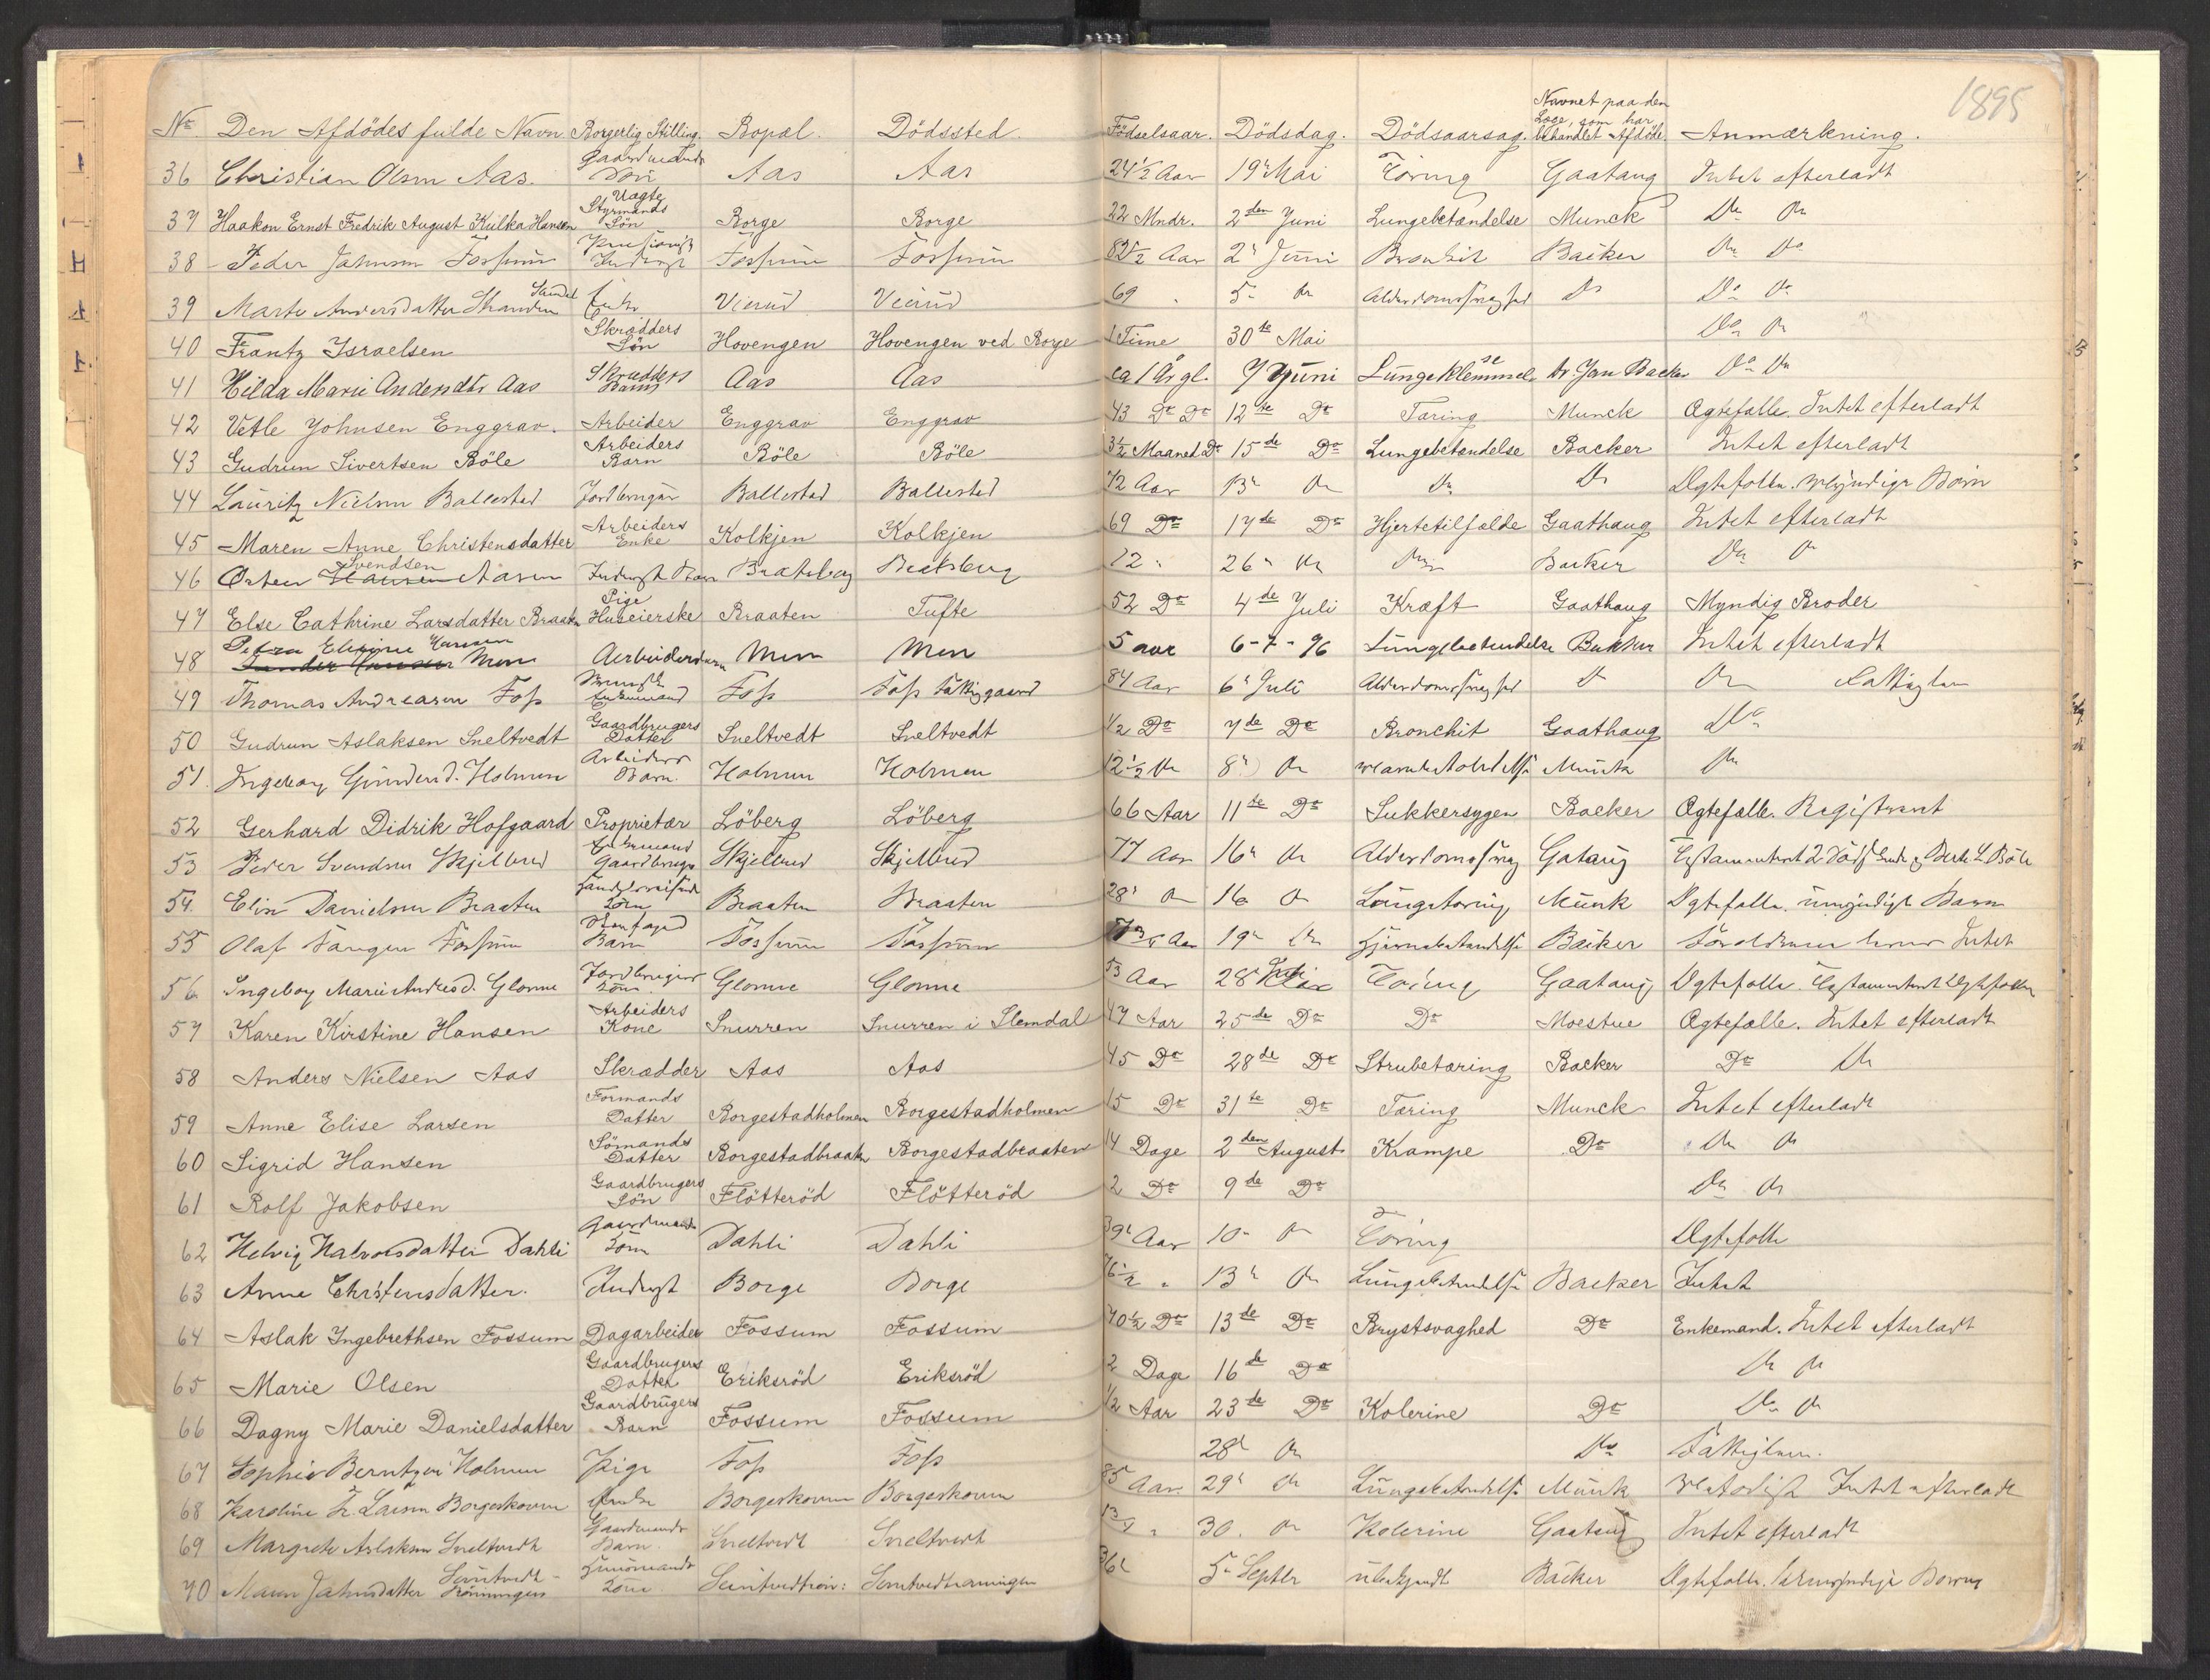 1895
No. Den Afdödes fulde Navn. Borgerlig Stilling. Bopæl. Dödssted. Födselsaar. Dödsdag. Dödsaarsag. Navnet paa den Læge, som har behandlet Afdöde. Anmærkning.
36 Christian Olsen Aas. Gaardmands Sön Aas Aas 24 1/2 Aar 19 Mai Tæring Gaataug Intet efterladt
37 Haakon Ernst Fredrik August Kulka Hansen Vagts Styrmands Sön Borge Borge 22 Mndr. 2den Juni Lungebetændelse Munck Do Do
38 Peder Johnsen Fossum Fossum Fossum 82 1/2 Aar 2 Juni Bronkit Backer Do Do
39 Marte Andersdatter Stranden Enke Vierud Vierud 69 5 Do Alderdomssvaghed Do Do Do
40 Frantz Israelsen Skrædders Sön Hovengen Hovengen ved Borge 1 Time 30te Mai Do Do
41 Hilda Marie Andersdtr Aas Skrædders Barns Aas Aas ca 1 År gl. 7 Juni Lungeklemmelse Dr. Jon Backer Do Do
42 Vetle Johnsen Enggrav. Arbeider Enggrav Enggrav 43 Do Do 12te Do Tæring Munck Ægtefælle. Intet efterladt
43 Gudrun Sivertsen Böle Arbeiders Barn Böle Böle 3 1/2 Maaned Do 15de Do Lungebetændelse Backer Intet efterladt
44 Lauritz Nielsen Ballestad Jordbruger Ballestad Ballestad 72 Aar 13 Do Do Do Ægtefælle. Myndige Börn
45 Maren Anne Christensdatter Arbeiders Enke Kolkjen Kolkjen 69 Do 17de Do Hjertetilfælde Gaathaug Intet efterladt
46 Svendsen Aasen Bratsberg Bratsberg 12 26 Do Backer Do Do
47 Else Cathrine Larsdatter Braaten Pige Huseierske Braaten Tufte 52 Do 4de Juli Kræft Gaathaug Myndig Broder
48 Petra Elevine Hansen Men Arbeiderbarn Men Men 5 aar 6-7-96 Lungebetendelse Bakker Intet efterladt
49 Thomas Andreasen Foss Enkemand Foss Foss Fattiggaard 84 Aar 6 Juli Alderdomssvaghed Do Do
50 Gudrun Aslaksen Sneltvedt Gaardbrugers Datter Sneltvedt Sneltvedt 1/2 Do 7de Do Bronchit Gaathaug Do
51. Ingeborg Gundersd. Holmen Arbeiders Barn. Holmen Holmen 12 1/2 Do 8 Do Munck Do
52 Gerhard Didrik Hofgaard Proprietær Löberg Löberg 66 Aar 11te Do Sukkersygen Backer Ægtefælle. Registreret
53 Peder Svendsen Skjelbred Enkemand Gaardbruger Skjelbred Skjelbred 77 Aar 16 Do Gataug
54. Elin Danielsen Braaten Kone Braaten Braaten 28 Do 16 Do Lungetæring Munk Ægtefælle. umyndige Barn
55 Olaf Tangen Fossum Barn Fossum Fossum Aar 19 Do Hjernebetændelse Backer Intet
56 Ingeborg Marie Andresd. Glonne Jordbrugers Kone. Glonne Glonne 53 Aar 28 Juli Tæring Gaataug Ægtefælle.
57 Karen Kirstine Hansen Arbeiders Kone Snurren Snurren i Slemdal 47 Aar 25de Do Do Moestue Ægtefælle. Intet efterladt
58 Anders Nielsen Aas Skrædder Aas Aas 45 Do 28de Do Strubetæring Backer Do Do
59 Anne Elise Larsen Formands Datter Borgestadholmen Borgestadholmen 15 Do 31te Do Tæring Munck Intet efterladt
60 Sigrid Hansen Sömands Datter Borgestadbraaten Borgestadbraaten 14 Dage 2den August Krampe Do Do Do
61 Rolf Jakobsen Gaardbrugers Sön Flötteröd Flötteröd 2 Do 9de Do Do Do
62 Helvig Halvorsdatter Dahli Gaardmands Kone Dahli Dahli 39 Aar 10 Do Tæring Ægtefælle
63 Anne Christensdatter. Inderst Borge Borge 76 1/2 13 Do Lungebetændelse Backer Intet
64 Aslak Ingebrethsen Fossum Dagarbeider Fossum Fossum 70 1/2 Do 13de Do Brystsvaghed Do Enkemand. Intet efterladt
65 Marie Olsen Gaardbrugers Datter Eriksröd Eriksröd 2 Dage 16de Do Do Do
66 Dagny Marie Danielsdatter Gaardbrugers Barn Fossum Fossum 1/2 Aar 23de Do Kolerine Do Do Do
67 Sophie Berntzen Holmen Pige Foss Foss 28 Do Do Fattiglem.
68 Karoline Larsen Borgeskoven Enke Borgeskoven Borgeskoven 85 Aar. 29 Do Lungebetændelse Munk Intet efterladt
69 Margrete Aslaksen Sneltvedt Gaardmands Barn. Sneltvedt Sneltvedt 30. Do Kolerine Gaataug Intet efterladt
70 Maren Johnsdatter Semtvedt- Rönningen Husmands Kone. Semtvedtrön: Semtvedtrønningen 36 5 Septbr ubekjendt Backer Ægtefælle.